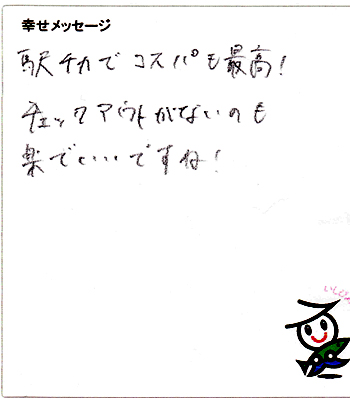 幸せメッセージ
駅チカでコスパも最高!
チェックアウトがないのも
楽でいいですね!